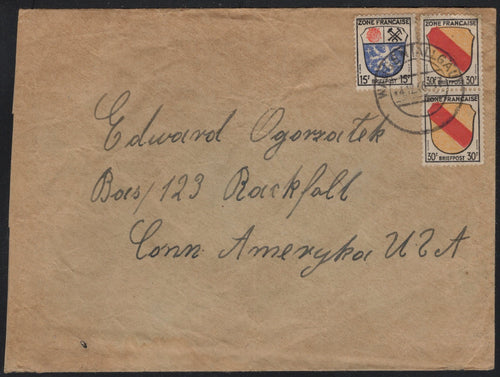 ZONE FRANÇAISE
15ᶠ BRIEFPOST 15ᶠ
ZONE FRANÇAISE
30ᶠ 30ᶠ
ZONE FRANÇAISE
30ᶠ BRIEFPOST 30ᶠ
Edward Ogorzatek
Bas/123 Rackfall
Conn Ameryka USA